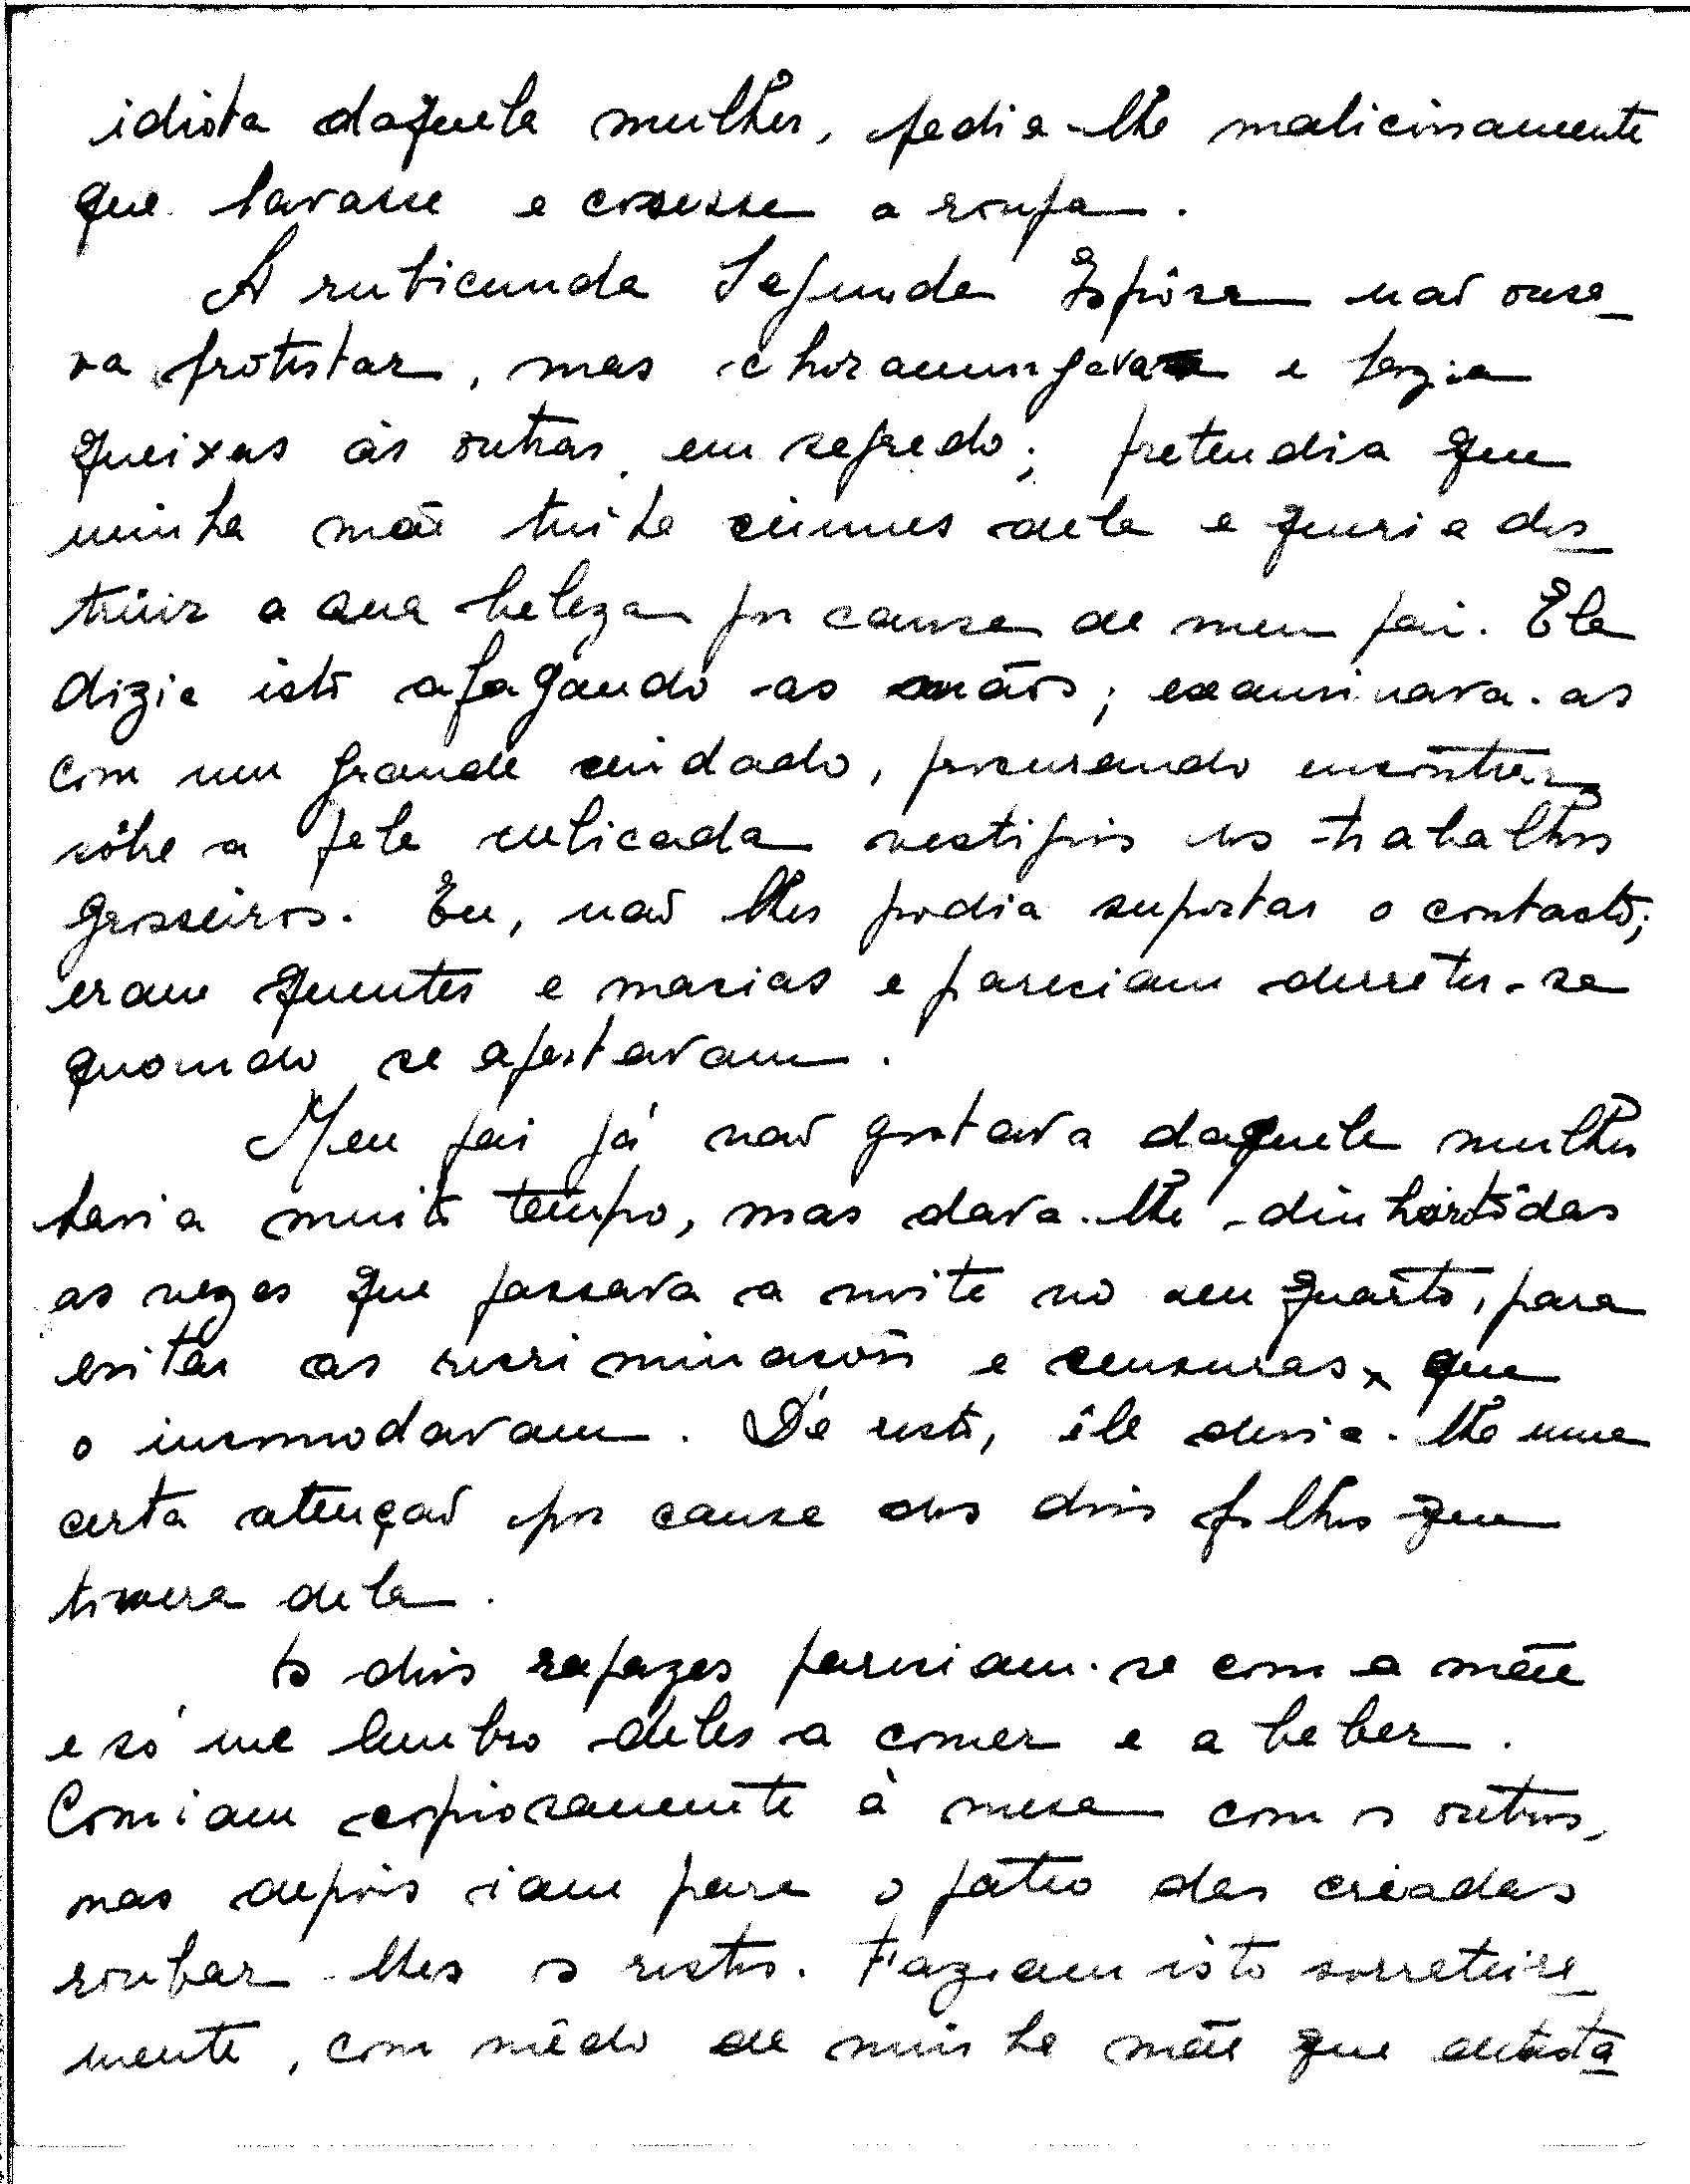 idiota daquela mulher, pedia-lhe maliciosamente
que lavasse e cosesse a roupa.
A rubicunda Segunda Espôsa não ousa-
va protestar, mas choramingava e fazia
queixas às outras, em segredo; pretendia que
minha mãe tinha ciumes dela e queria des-
truir a sua beleza por causa de meu pai. Ela
dizia isto afagando as mãos; examinava-as
com um grande cuidado, procurando encontrar,
sôbre a pele delicada vestigios dos trabalhos
grosseiros. Eu, não lhes podia suportar o contacto;
eram quentes e macias e pareciam derreter-se
quando se apertavam.
Meu pai já não gostava daquela mulher
havia muito tempo, mas dava-lhe dinheiro tôdas
as vezes que passava a noite no seu quarto, para
evitar as recriminacões e censuras, que
o incomodavam. De resto, êle devia-lhe uma
certa atenção por causa dos dois filhos que
tivera dela.
Os dois rapazes pareciam-se com a mãe
e só me lembro deles a comer e a beber.
Comiam copiosamente à mesa com os outros,
mas depois iam para o páteo das criadas
roubar-lhes os restos. Faziam isto sorrateira-
mente, com mêdo de minha mãe que detesta-